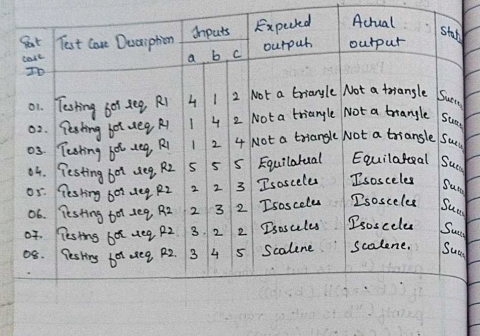 Test Case ID Test Case Description Inputs a b c Expected output Actual output
01. Testing for req R1 4 1 2 Not a triangle Not a triangle
02. Testing for req R1 1 4 2 Not a triangle Not a triangle
03. Testing for req R1 1 2 4 Not a triangle Not a triangle
04. Testing for req R2 5 5 5 Equilateral Equilateral
05. Testing for req R2 2 2 3 Isosceles Isosceles
06. Testing for req R2 2 3 2 Isosceles Isosceles
07. Testing for req R2 3 2 2 Isosceles Isosceles
08. Testing for req R2 3 4 5 Scalene Scalene.